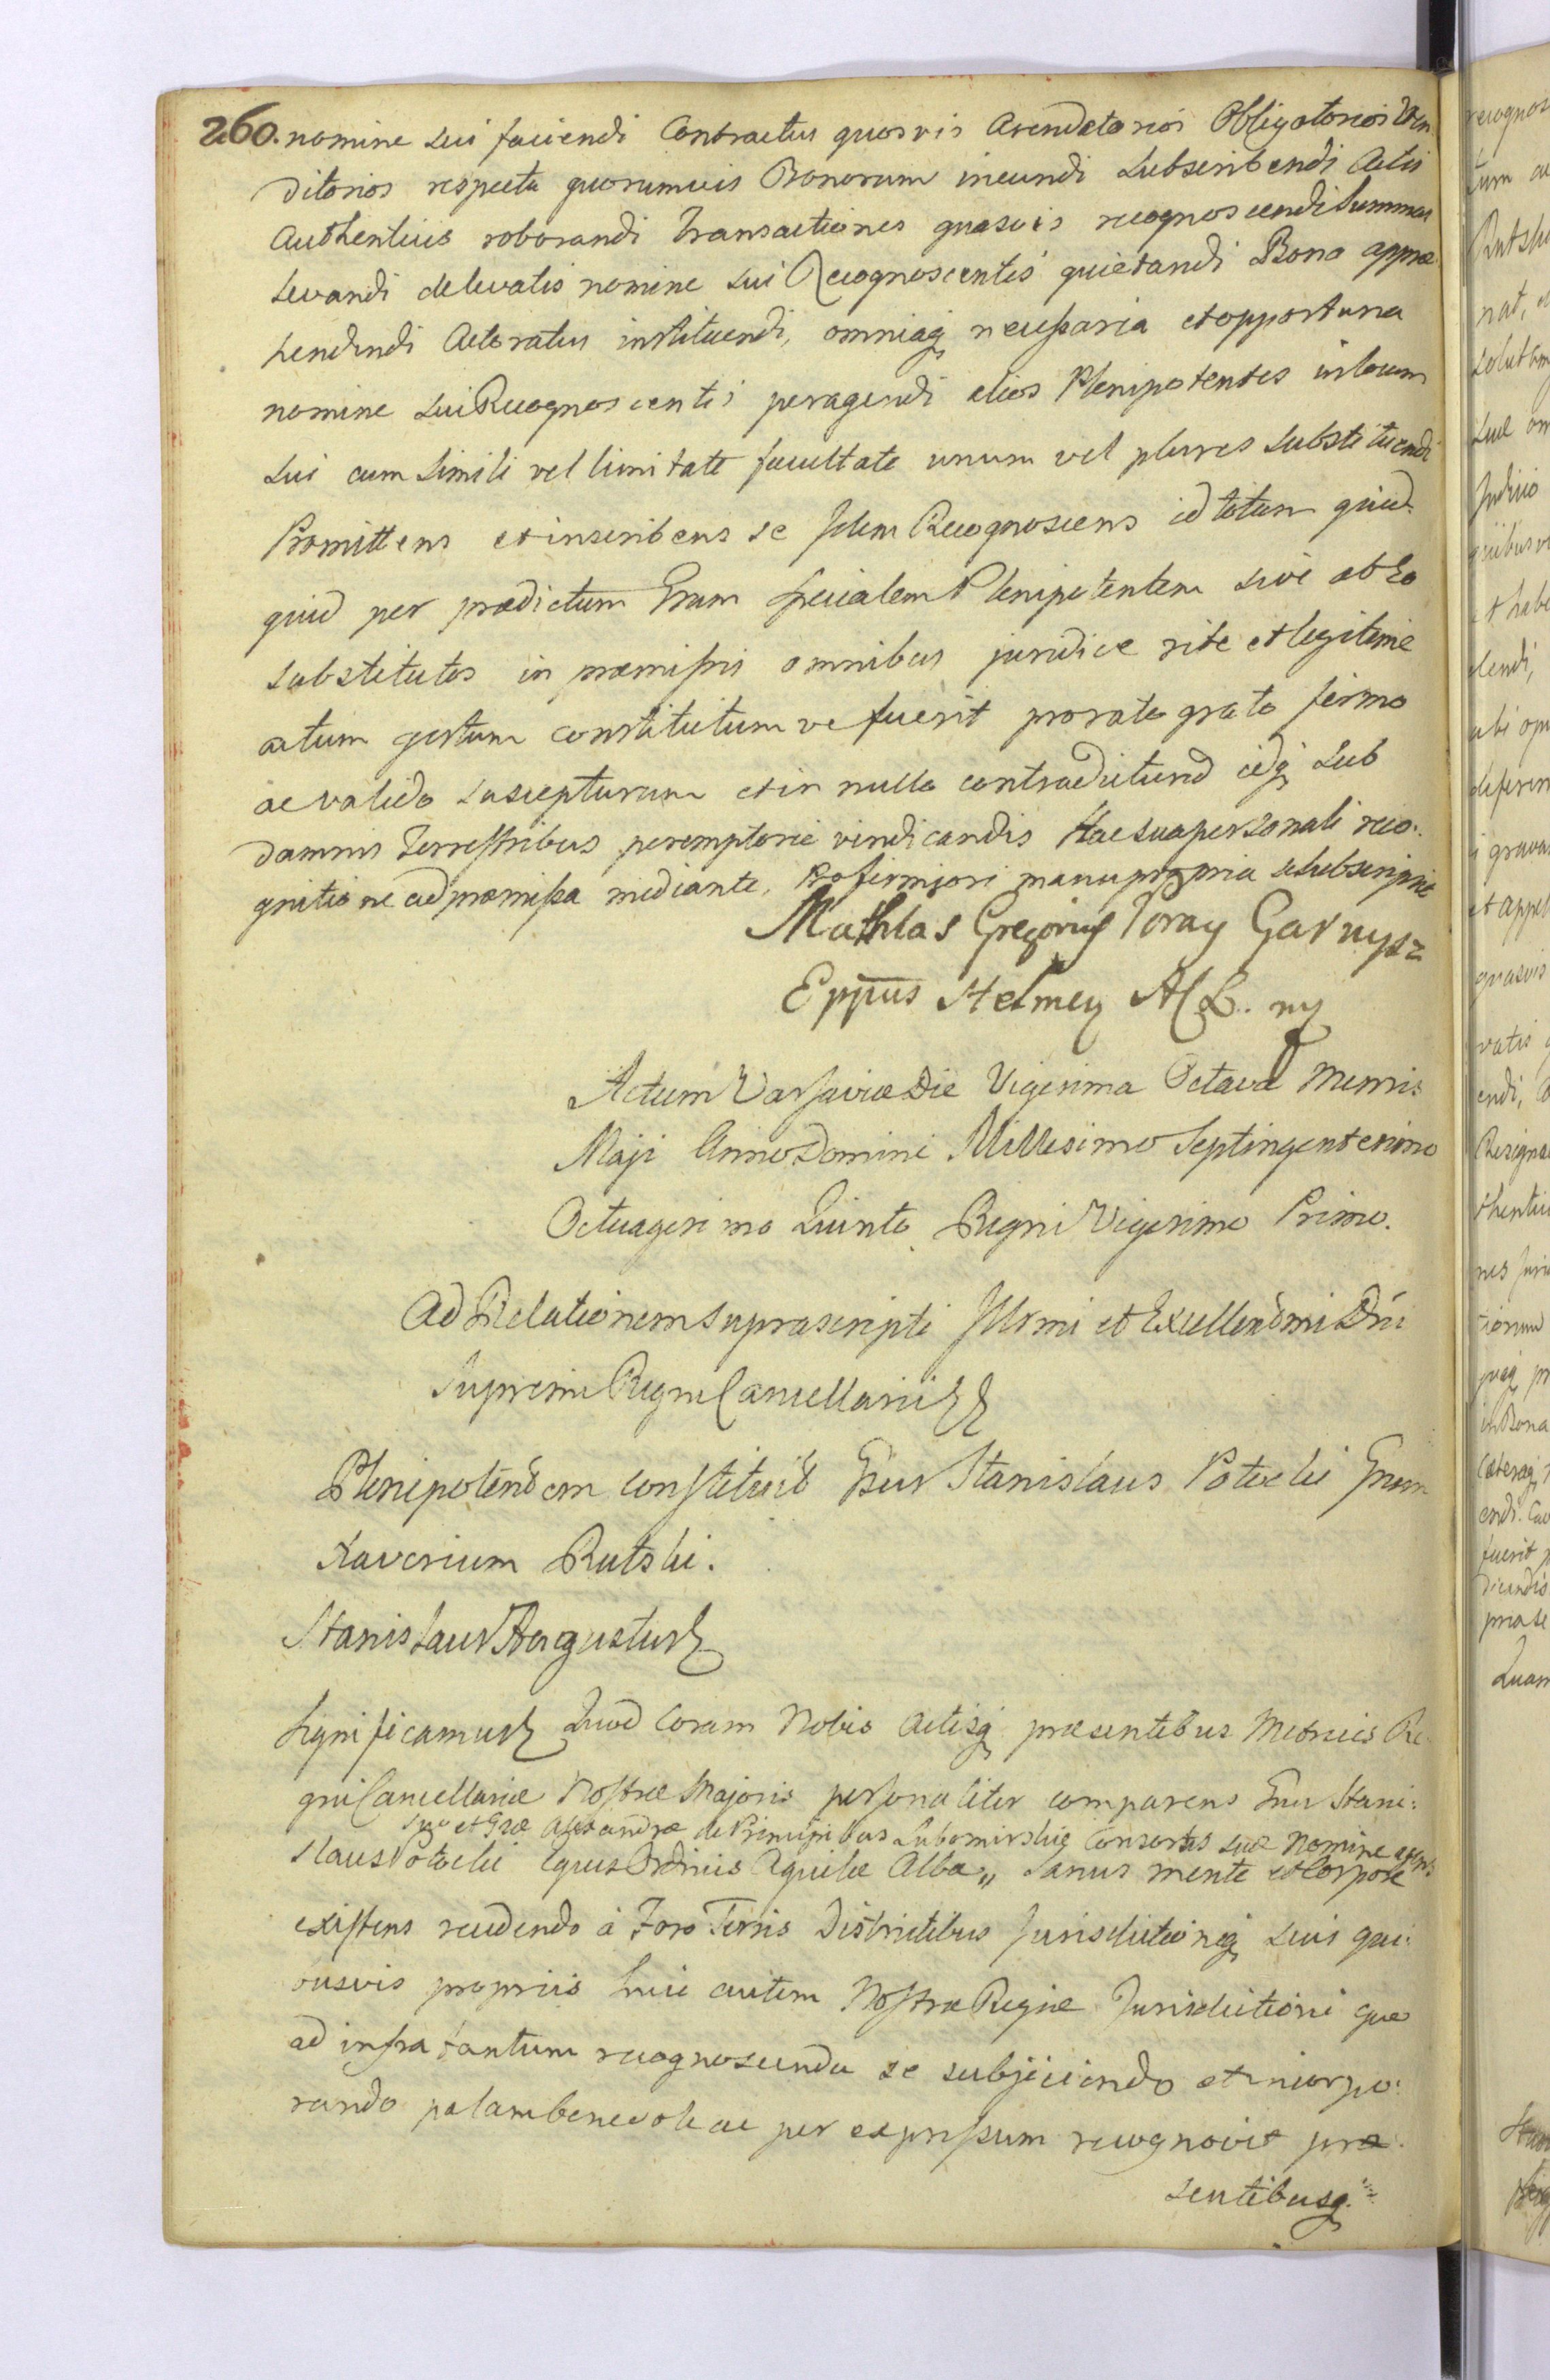 260. nomine sui faciendi Contractus quosvis Arendatorios Obligatorios Ven
ditorios respectu quorumvis Bonorum ineundi subscribendi Actis
Authenticis roborandi Transactiones quasvis recognoscendi Summas
levandi de levatis nomine sui Recognoscentis quietandi Bona appre
hendendi Actoratus instituendi, omniaq necessaria et opportuna
nomine sui Recognoscentis peragendi alios Plenipotentes in locum
sui cum simili vel limitata facultate unum vel plures substituendi
Promittens et inscribens se Idem Recognoscens id totum quid
quid per praedictum Grum specialem Plenipotentem sive ab Eo
substitutos in praemissis omnibus juridice rite et legitime
actum gestum constitutum ve fuerit pro rato grato firmo
ac valido suscepturum et in nullo contradicturum idq sub
damnis Terrestribus peremptorie vindicandis Hac sua personali reco:
gnitione ad praemissa mediante. Pro firmiori manu propria se subscripsit
Mathias Gregorius Poray Garnysz
Eppus Helmen
Actum Varsaviae Die Vigesima Octava Mensis
Maji Anno Domini Millesimo Septingentesimo
Octuagesimo Quinto Regni Vigesimo Primo.
Ad Relationem suprascripti Illrmi et Excellendmi Dni
Supremi Regni Cancellarii
Plenipotendem constituit Gsus Stanislaus Potocki Grum
Xaverium Rutski.
Stanislaus Augustus
Significamus Quod Coram Nobis Actisq praesentibus Metricis Re
gni Cancellariae Nostrae Majoris personaliter comparens Gnus Stani:
suo et Grae Alexandrae de Principibus Lubomirskie Consortis suae nomine agens
slaus Potocki Eques Ordinis Aquilae Albae „ Sanus mente et Corpore
existens recedendo à Foro Terris Districtibus Jurisdictioniq suis qui:
busvis propriis huic autem Nostrae Regiae Jurisdictioni quo
ad infra tantum recognoscenda se subjiciendo et incorpo:
rando palam benevole ac per expressum recognovit prae
sentibusq